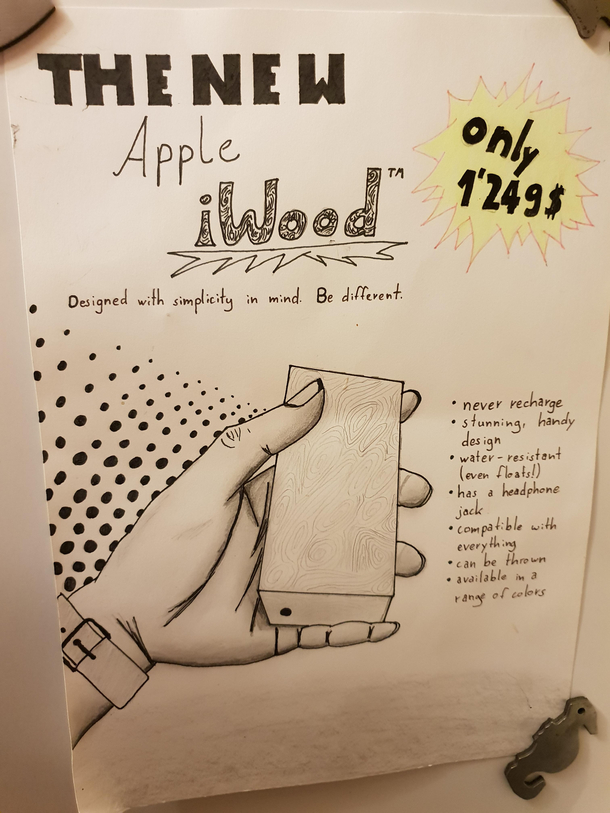 THE NEW
Apple
iWood™
only
1'249$
Designed with simplicity in mind. Be different.
• never recharge
• stunning, handy
design
• water-resistant
(even floats!)
• has a headphone
jack
• compatible with
everything
• can be thrown
• available in a
range of colors